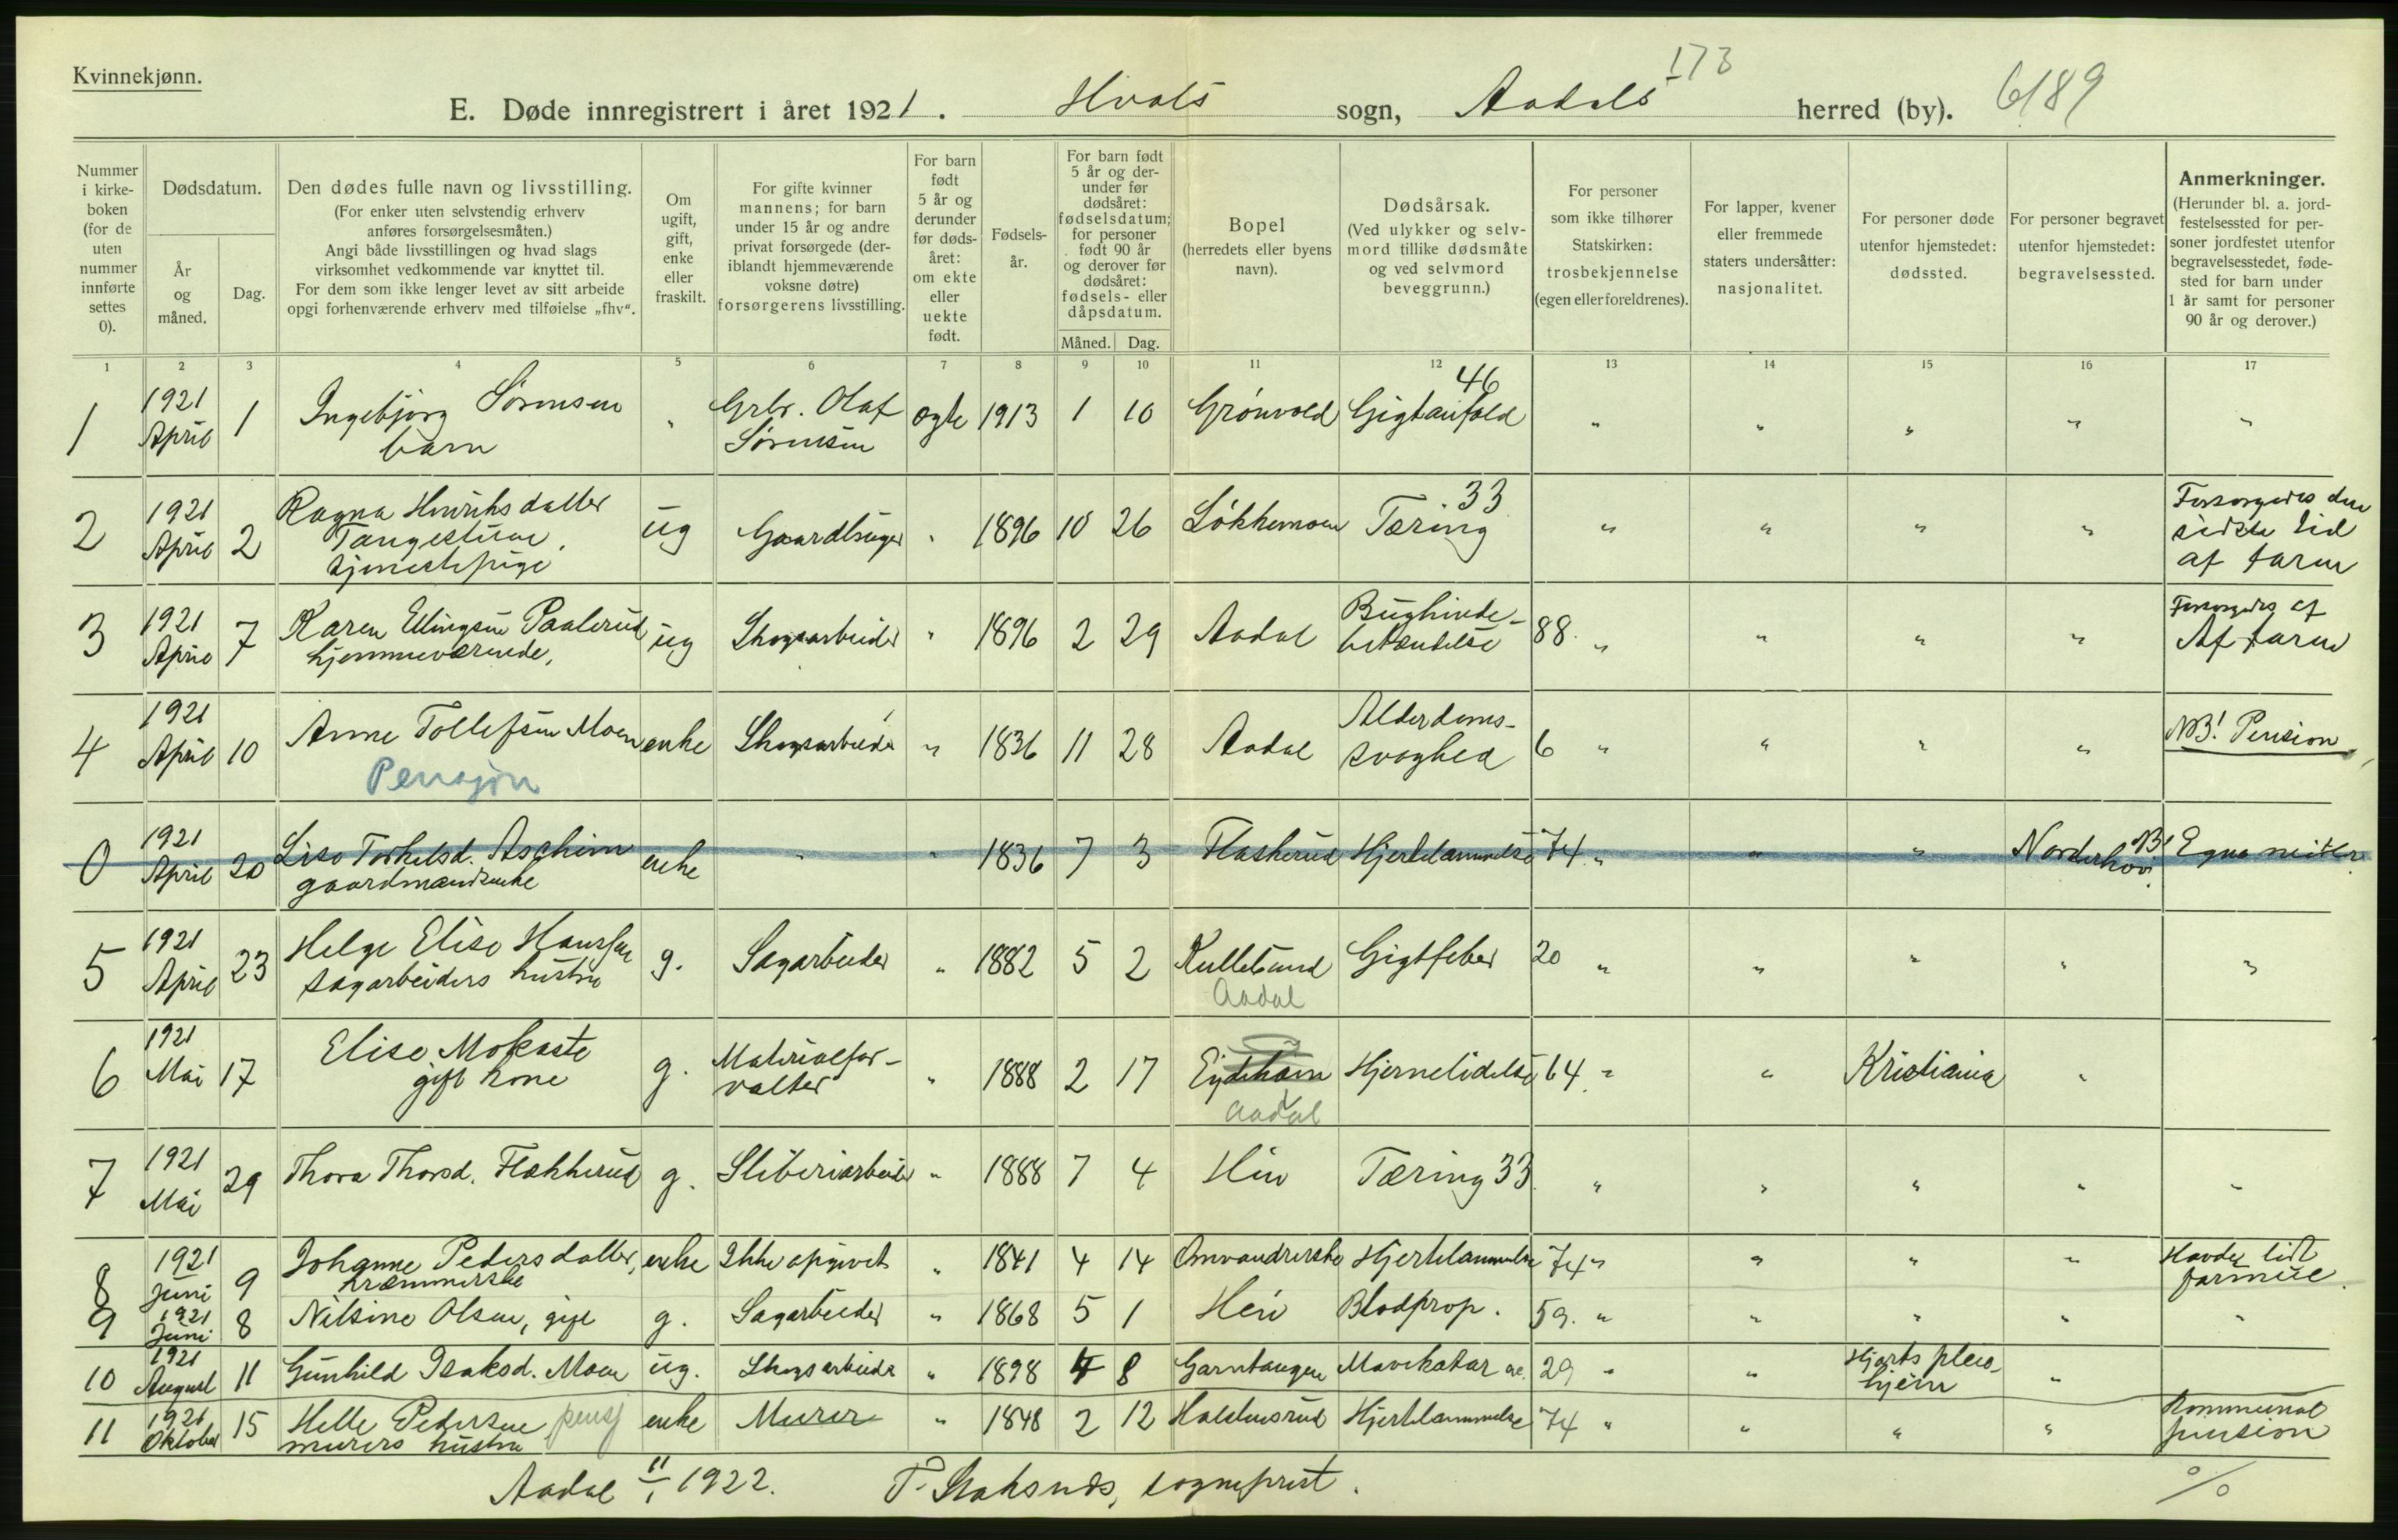 Kvinnekjønn.
173
E. Døde innregistrert i året 1921. Hvals sogn, Aadals herred (by). 6189
Nummer i kirke-boken (for de uten nummer innførte settes 0).
Dødsdatum.
År og måned.
Dag.
Den dødes fulle navn og livsstilling.
(For enker uten selvstendig erhverv anføres forsørgelsesmåten.)
Angi både livsstillingen og hvad slags virksomhet vedkommende var knyttet til.
For dem som ikke lenger levet av sitt arbeide opgi forhenværende erhverv med tilføielse „fhv“.
Om ugift, gift, enke eller fraskilt.
For gifte kvinner mannens; for barn under 15 år og andre privat forsørgede (deriblandt hjemmeværende voksne døtre) forsørgerens livsstilling.
For barn født 5 år og derunder før døds-året: om ekte eller uekte født.
Fødsels-år.
For barn født 5 år og der-under før dødsåret: fødselsdatum; for personer født 90 år og derover før dødsåret: fødsels- eller dåpsdatum.
Måned. Dag.
Bopel (herredets eller byens navn).
Dødsårsak.
(Ved ulykker og selv-mord tillike dødsmåte og ved selvmord beveggrunn.)
For personer som ikke tilhører Statskirken: trosbekjennelse (egen eller foreldrenes).
For lapper, kvener eller fremmede staters undersåtter: nasjonalitet.
For personer døde utenfor hjemstedet: dødssted.
For personer begravet utenfor hjemstedet: begravelsessted.
Anmerkninger.
(Herunder bl. a. jord-festelsessted for per-soner jordfestet utenfor begravelsesstedet, føde-sted for barn under 1 år samt for personer 90 år og derover.)
1 2 3 4 5 6 7 8 9 10 11 12 13 14 15 16 17
1 1921 April 1 Ingebjørg Sørensen barn " Grbr. Olaf Sørensen ægte 1913 1 10 Grønvold Gigtanfald 46 " " " " "
2 1921 April 2 Ragna Henriksdatter Tangestuen, tjenestepige ug Gaardbruger " 1896 10 26 Løkkemoen Tæring 33 " " " " Forsørgedes den sidste tid af farm
3 1921 April 7 Karen Ellingsen Paalerud hjemmeværende, ug Skogsarbeider " 1896 2 29 Aadal Bughinde-betændelse 88. " " " " Forsørgedes af Af farm
4 1921 April 10 Anne Tollefsen Moen enke Skogsarbeider " 1836 11 28 Aadal Alderdoms-svaghed 6 " " " " NB! Pension
Pensjon
0 1921 April 20 Lise Torkelsd. Aschim gaardmandsenke enke " " 1836 7 3 Flaskerud Hjertelammelse 74. " " " Norderhov. NB! Egne midler.
5 1921 April 23 Helge Elise Hansen sagarbeiders hustru g. Sagarbeider " 1882 5 2 Kullebund Gigtfeber 20 " " " " "
Aadal
6 1921 Mai 17 Elise Mokaste gift kone g. Materialfor-valter " 1888 2 17 Hjernelidelse 64. " " Kristiania "
Aadal
7 1921 Mai 29 Thora Thorsd. Flakkerud g. Sliberiarbeider " 1888 7 4 Hen Tæring 33. " " " " "
8 1921 Juni 9 Johanne Pedersdatter, kræmmerske enke Ikke opgivet " 1841 4 14 Omvandrerske Hjertelammelse 74 " " " " Havde lidt formue.
9 1921 Juni 8 Nilsine Olsen, gift g. Sagarbeider " 1868 5 1 Hen Blodprop. 59. " " " " "
10 1921 August 11 Gunhild Isaksd. Moen ug. Skogsarbeider " 1898 4 8 Garntangen Mavekatar ac. 29 " " Hjerts pleie-hjem "
11 1921 Oktober 15 Helle Pedersen murers hustru pensj enke Murer " 1848 2 12 Hjertelammelse 74 " " " " Kommunal pension
Aadal 11/1 1922. sogneprest.
%